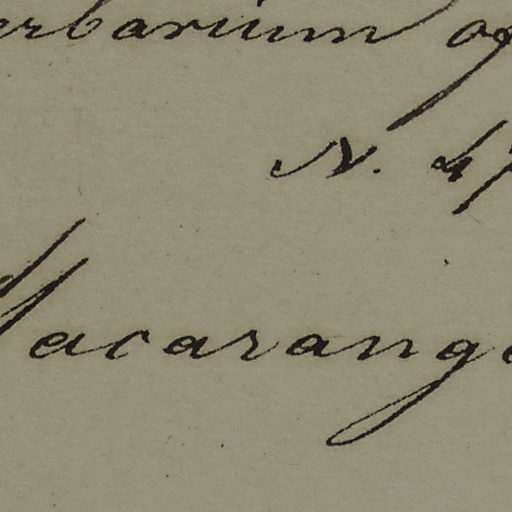 erbarium of
N. 47
Macaranga